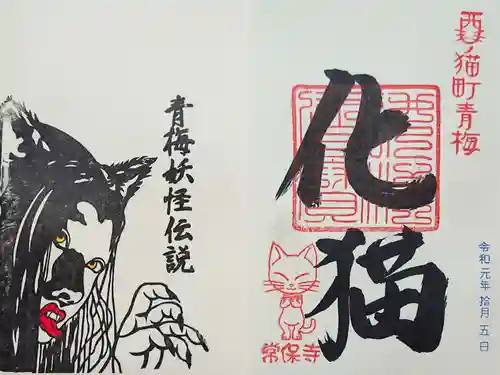 猫町青梅
化猫
常保寺
令和元年 拾月 五日
青梅妖怪伝説